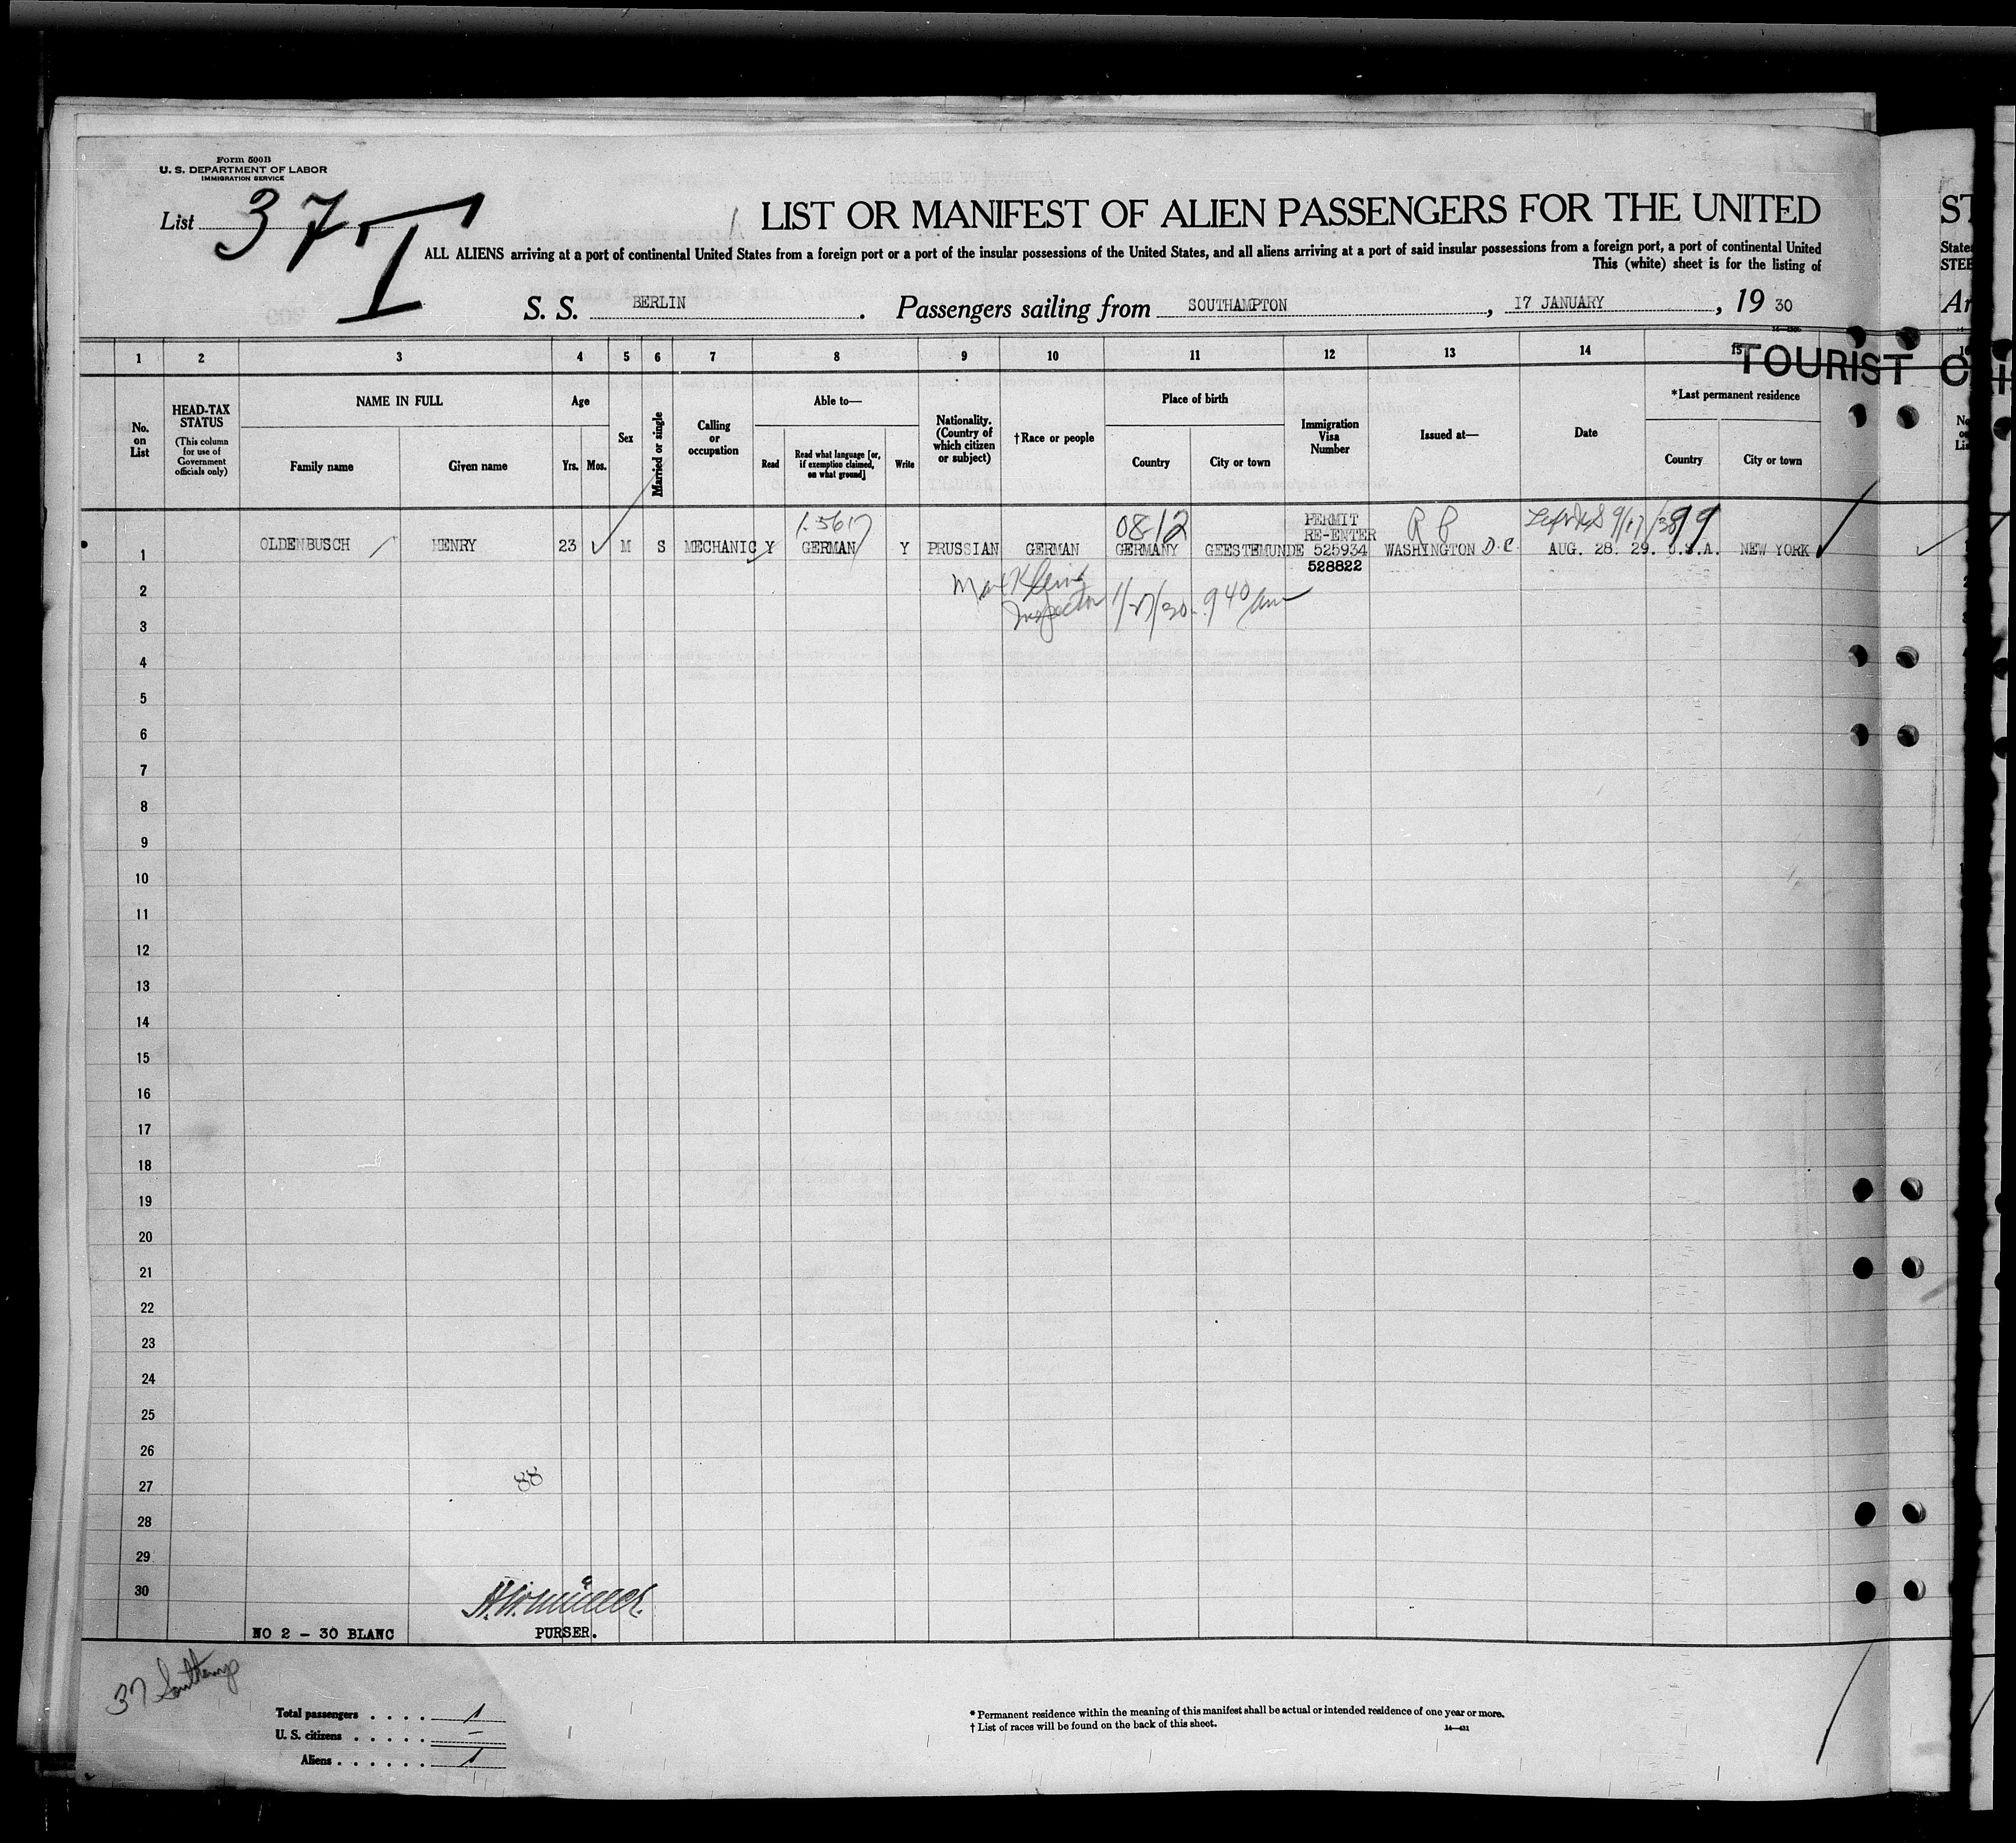 Form 500B
U. S. DEPARTMENT OF LABOR
IMMIGRATION SERVICE
List 37
T
LIST OR MANIFEST OF ALIEN PASSENGERS FOR THE UNITED
ST
ALL ALIENS arriving at a port of continental United States from a foreign port or a port of the insular possessions of the United States, and all aliens arriving at a port of said insular possessions from a foreign port, a port of continental United
State
This (white) sheet is for the listing of
STEE
S. S. BERLIN. Passengers sailing from SOUTHAMPTON, 17 JANUARY, 1930
Ar
1 2 3 4 5 6 7 8 9 10 11 12 13 14 15
TOURIST
No. on List
HEAD-TAX STATUS
(This column for use of Government officials only)
NAME IN FULL
Family name
Given name
Age
Yrs. Mos.
Sex
Married or single
Calling or occupation
Able to—
Read
Read what language [or, if exemption claimed, on what ground]
Write
Nationality. (Country of which citizen or subject)
†Race or people
Place of birth
Country
City or town
Immigration Visa Number
Issued at—
Date
*Last permanent residence
Country
City or town
0812
PERMIT
99
RE-ENTER
1 OLDENBUSCH HENRY 23 M S MECHANIC Y GERMAN Y PRUSSIAN GERMAN GERMANY GEESTEMUNDE 525934 WASHINGTON D.C. AUG. 28. 29. U.S.A. NEW YORK
528822
2
Inspector 1/27/30 9 40 am
3
4
5
6
7
8
9
10
11
12
13
14
15
16
17
18
19
20
21
22
23
24
25
26
27
88
28
29
30
NO 2 - 30 BLANC
PURSER.
37 Southamp
Total passengers . . . . 1
U. S. citizens . . . . . —
Aliens . . . . . . 1
* Permanent residence within the meaning of this manifest shall be actual or intended residence of one year or more.
† List of races will be found on the back of this sheet.